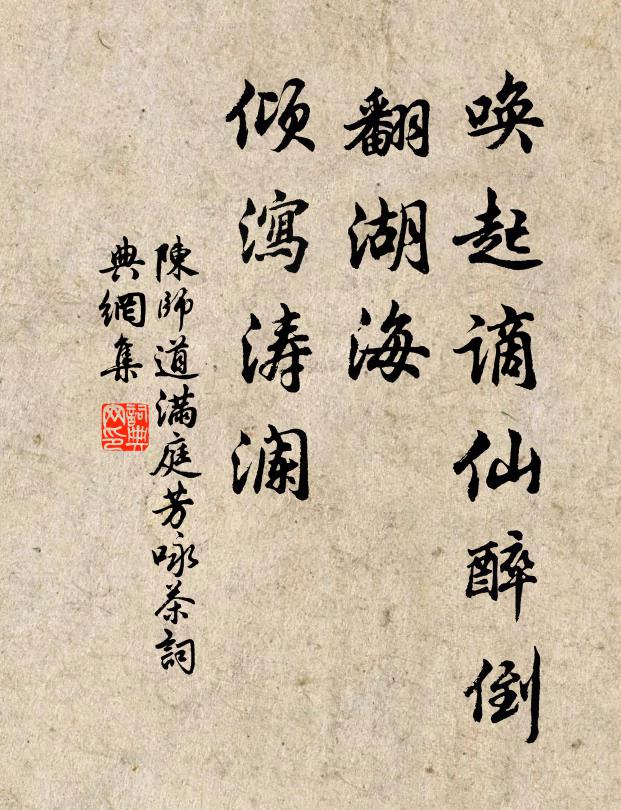 唤起谪仙醉倒
翻湖海
倾瀉涛澜
陳師道滿庭芳咏茶詞
典網集
詞典网印